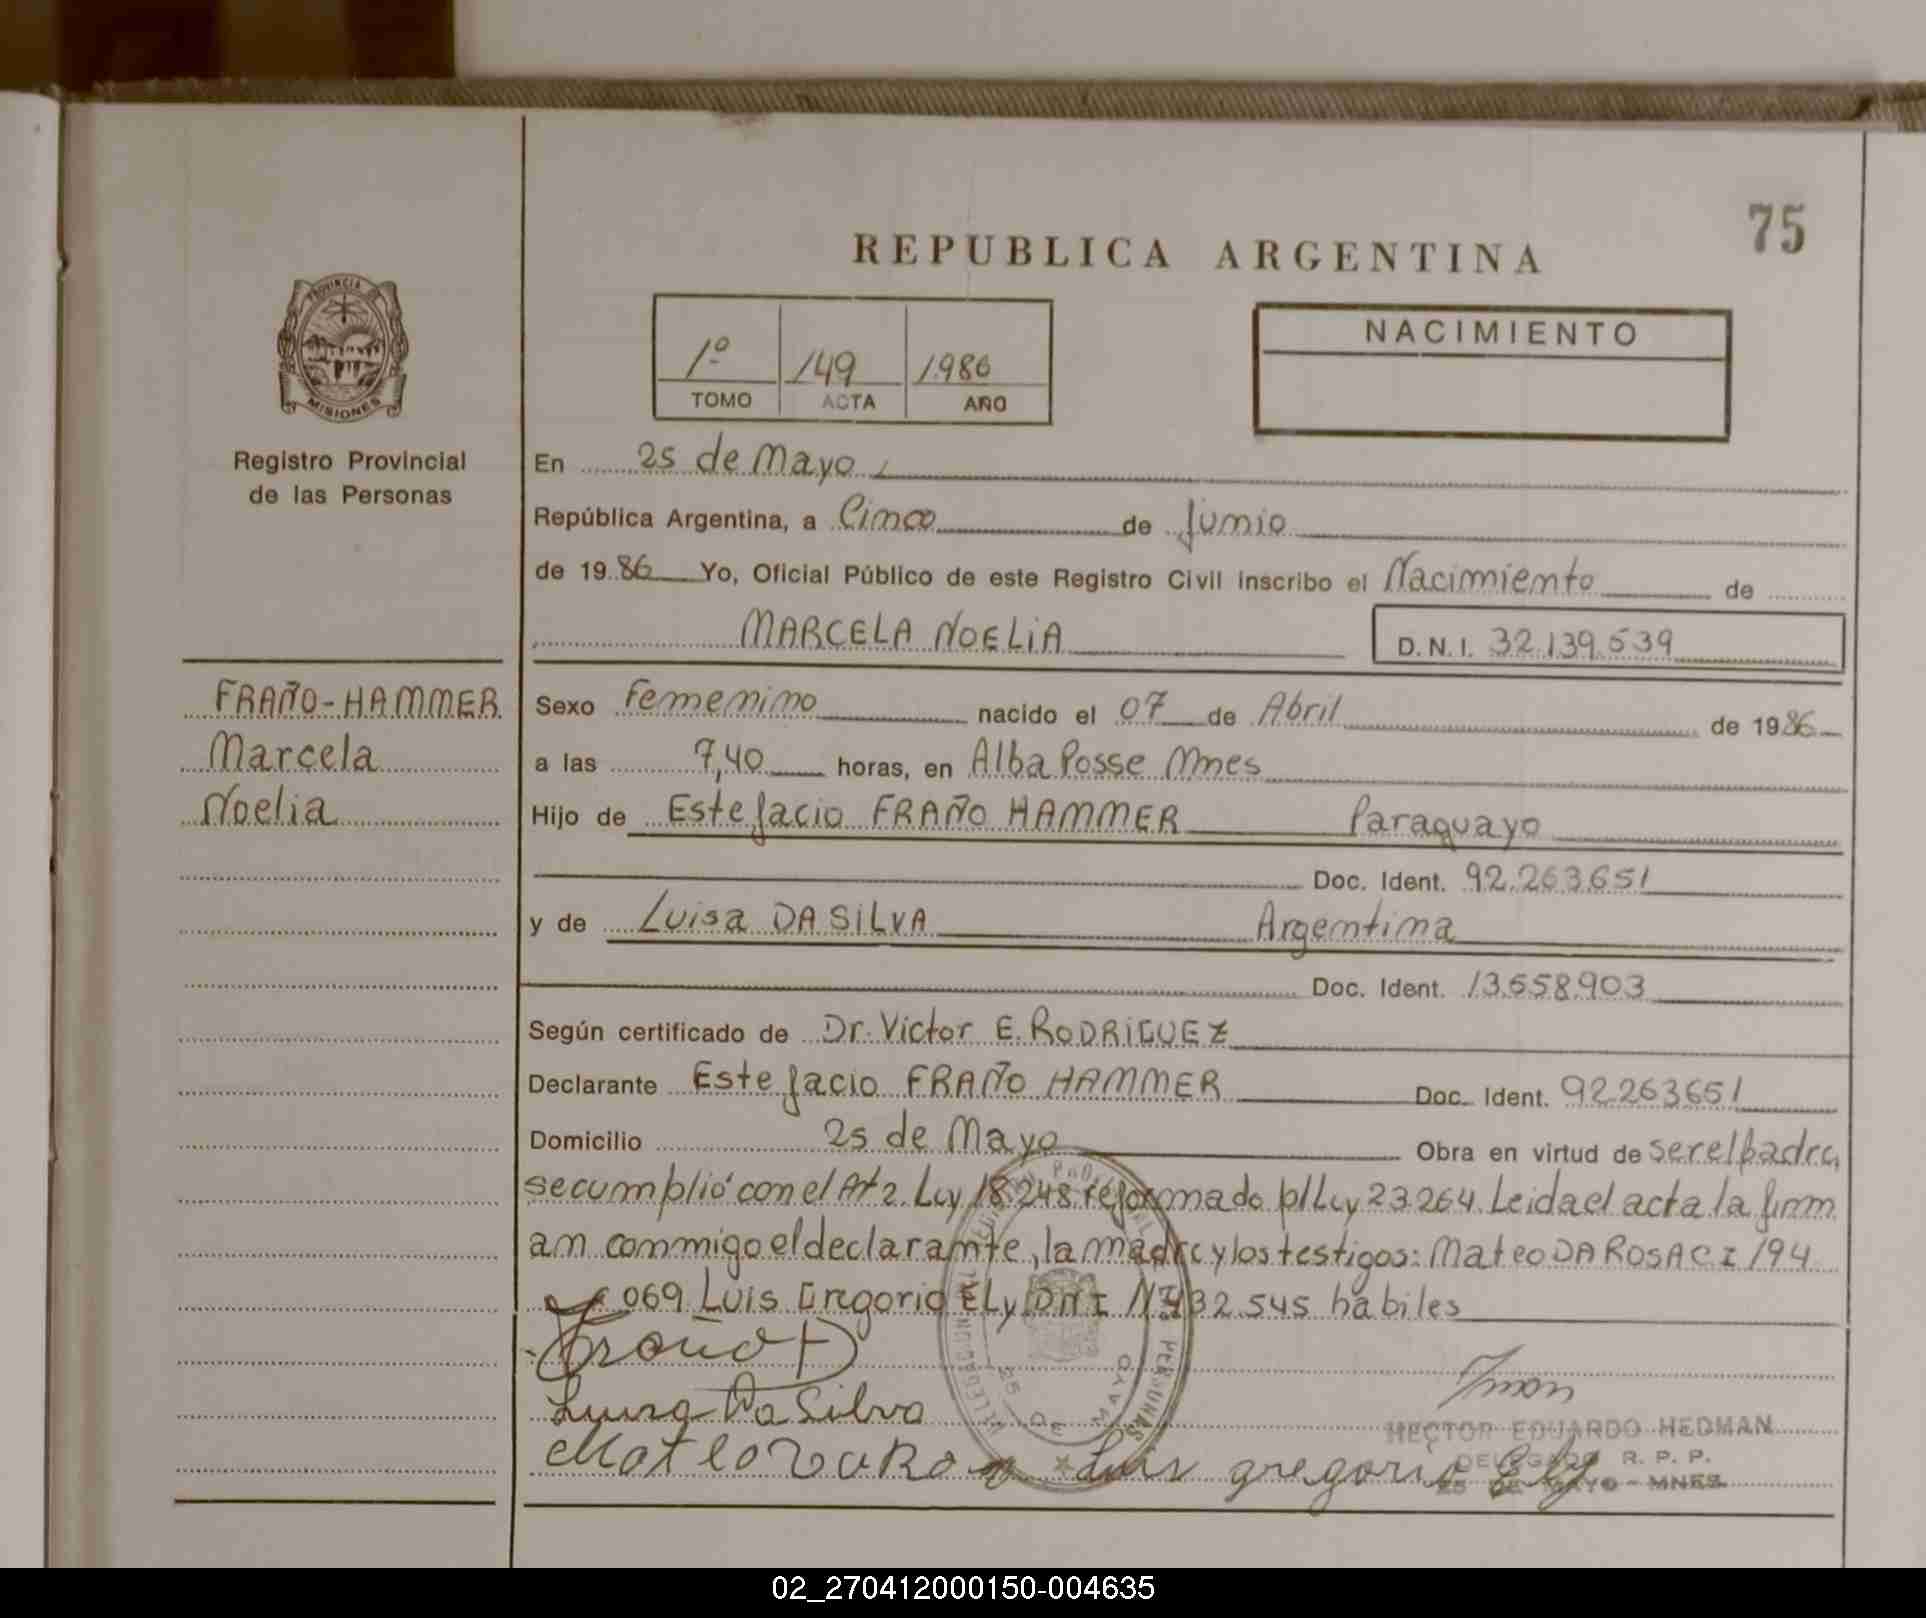 75
REPUBLICA ARGENTINA
PROVINCIA DE
MISIONES
Registro Provincial
de las Personas
1º 149 1.986
TOMO ACTA AÑO
NACIMIENTO
En 25 de Mayo
República Argentina, a Cinco de Junio
de 1986 Yo, Oficial Público de este Registro Civil inscribo el Nacimiento de
MARCELA NOELIA D.N.I. 32.139.539
FRAÑO-HAMMER
Marcela
Noelia
Sexo Femenino nacido el 07 de Abril de 1986
a las 7,40 horas, en Alba Posse Mnes
Hijo de Estefacio FRAÑO HAMMER Paraguayo
Doc. Ident. 92.263651
y de Luisa DA SILVA Argentina
Doc. Ident. 13.558.903
Según certificado de Dr. Victor E. RODRIGUEZ
Declarante Estefacio FRAÑO HAMMER Doc. Ident. 92263651
Domicilio 25 de Mayo Obra en virtud de ser el padre
se cumplió con el Art 2. Ley 18.248 reformado p/Ley 23.264. Leida el acta la firm
an conmigo el declarante, la madre y los testigos: Mateo DA ROSA C I 194
069 Luis Gregorio ELy DNI 432.545 habiles
Fraño H
Luisa Da Silva
Mateo Da Ros Luis gregorio Ely
HECTOR EDUARDO HEDMAN
DELEGADO R. P. P.
25 DE MAYO - MNES.
25 DE MAYO
02_270412000150-004635